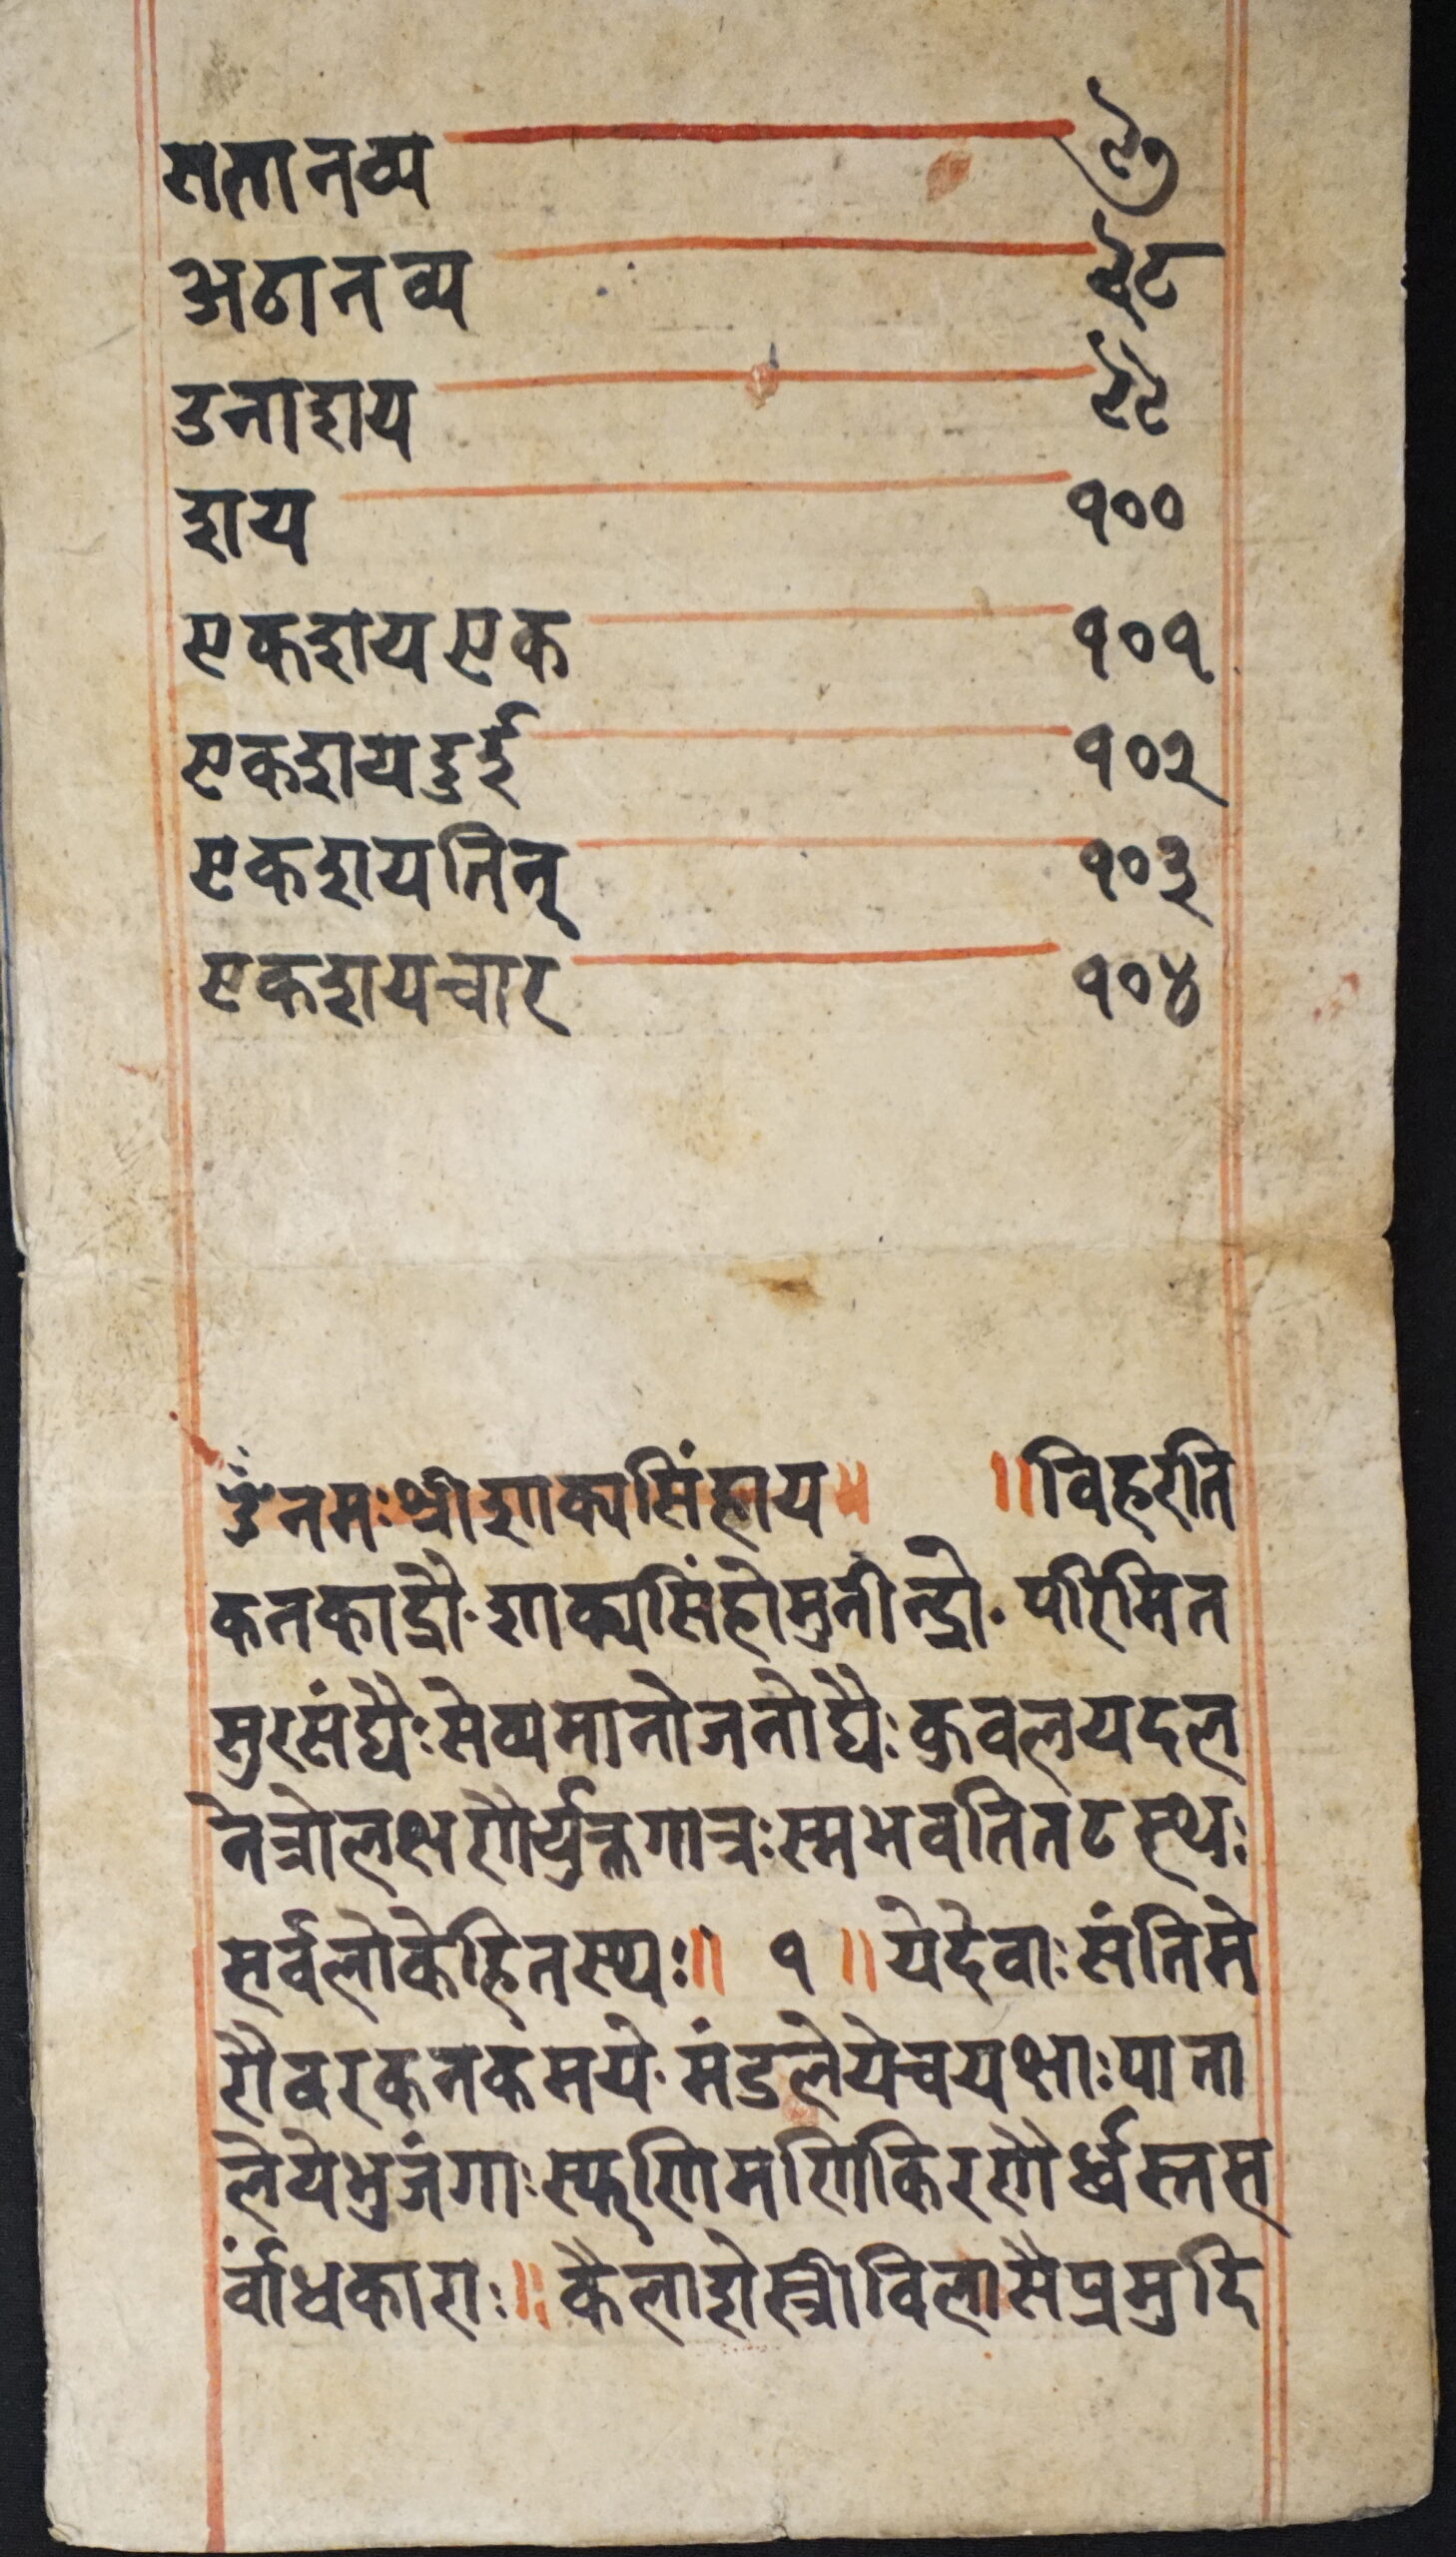 सतानव्य ९७
अठानव्य ९८
उनाशय ९९
शय १००
एकशयएक १०१
एकशयदुई १०२
एकशयतिन् १०३
एकशयचार १०४
ॐनमःश्रीशाक्यसिंहाय॥ ॥विहरति
कनकाद्रौ·शाक्यसिंहोमुनीन्द्रो·परिमित
सुरसंघैःसेव्यमानोजनोघैःकुवलयदल
नेत्रोलक्षणैर्युक्तगात्रःस्मभवतितटस्थः
सर्वलोकेहितस्थः॥ १ ॥येदेवाःसंतिमे
रौवरकनकमये·मंडलेयेचयक्षाःपाता
लेयेभुजंगाःस्फणिमणिकिरणैर्ध्वस्तस
र्वांधकाराः॥कैलाशेस्त्रीविलासैप्रमुदि